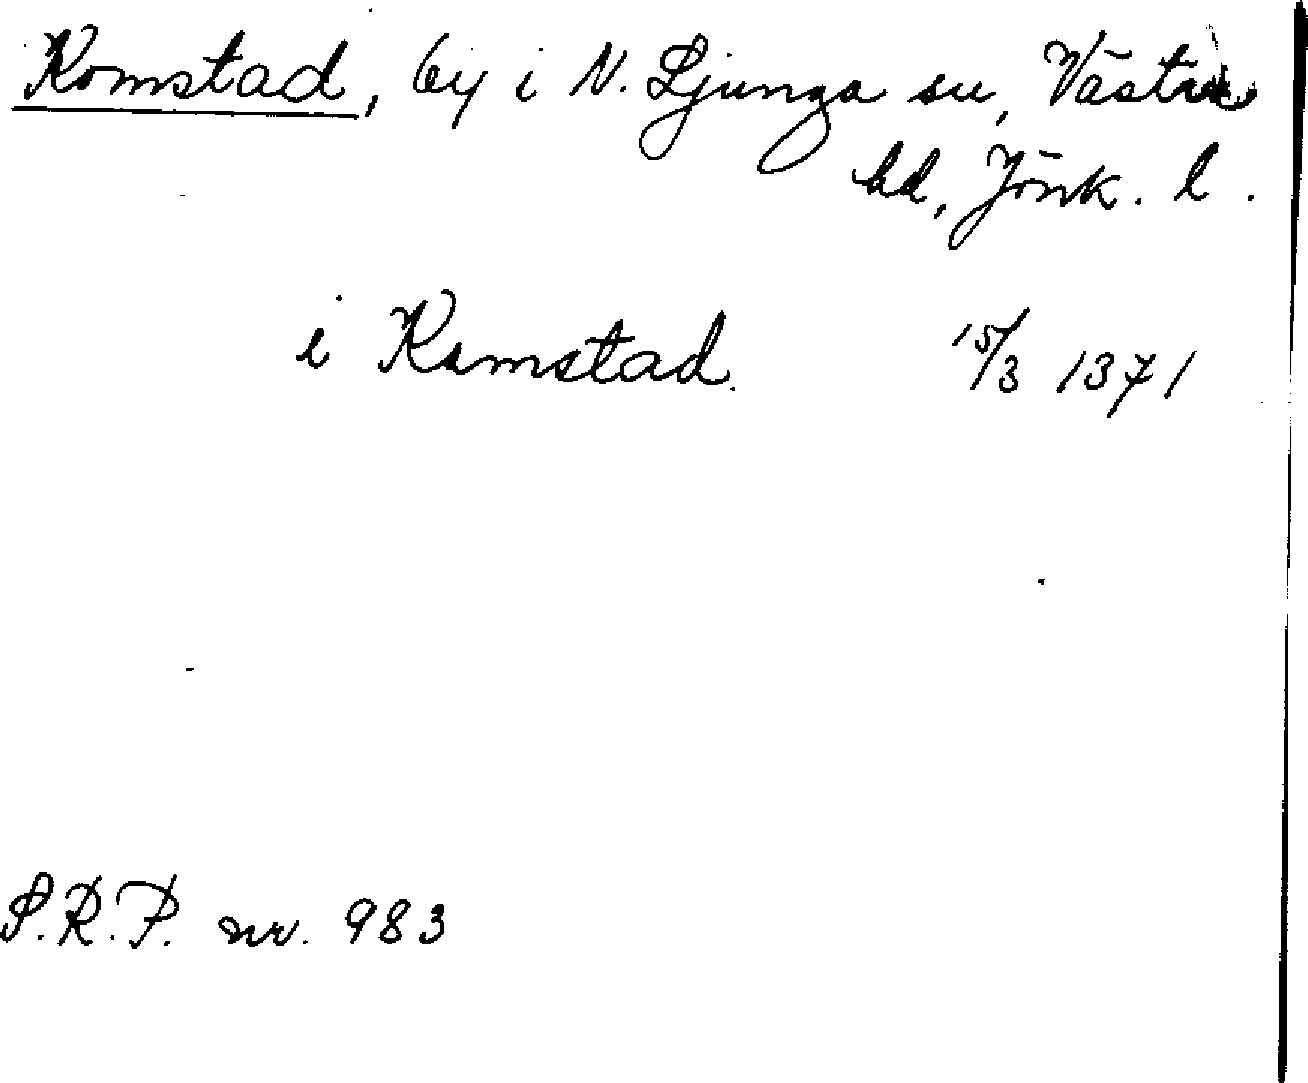 Komstad, by i N. Ljunga sn, Västra
hd, Jönk. l.
i Komstad. 15/3 1371
S.R.P. nr. 983